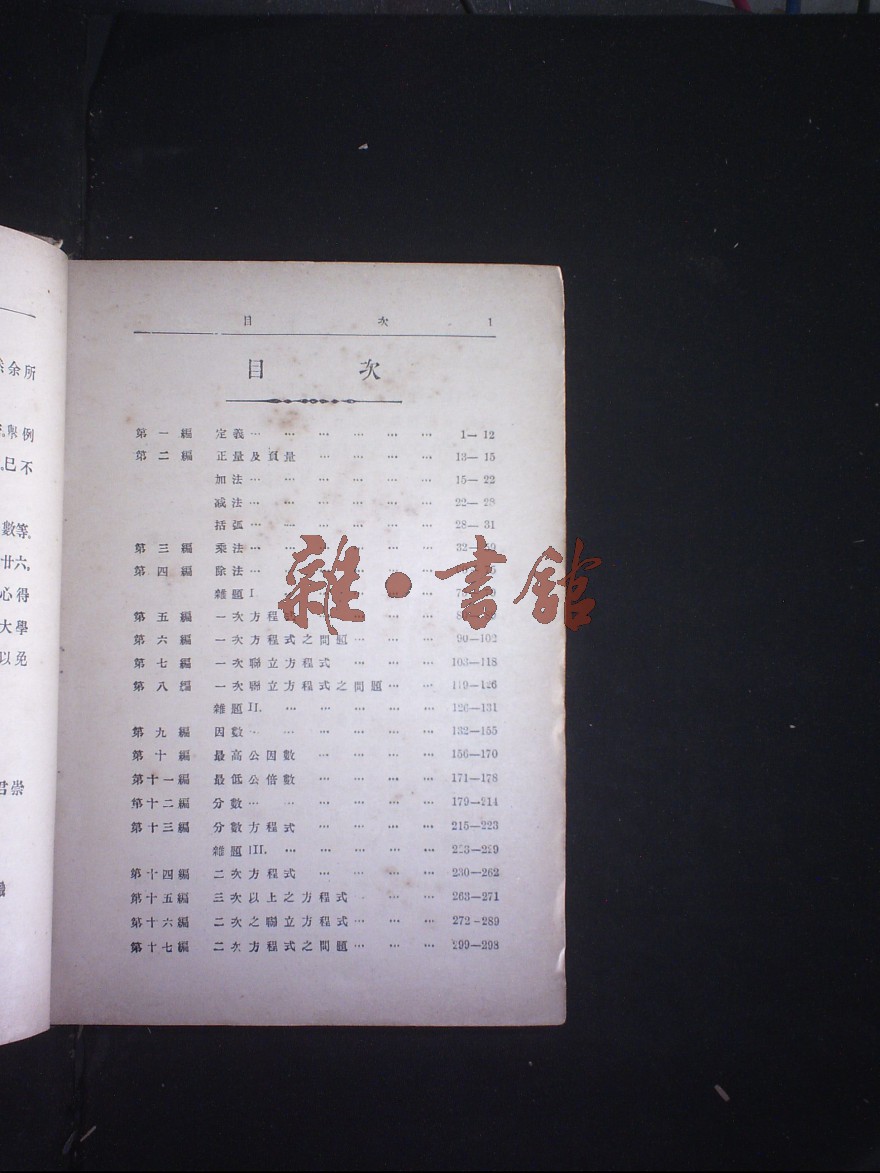 目 次 1
目 次
第一編 定義… … … … … … 1—12
第二編 正量及負量 … … … … 13—15
加法… … … … … … 15—22
减法… … … … … … 22—28
括弧… … … … … … 28—31
第三編 乘法… … … … … … 32—
第四編 除法…
雜題 I.
第五編 一次方程式
第六編 一次方程式之問題… … … 90—102
第七編 一次聯立方程式 … … … 103—118
第八編 一次聯立方程式之問題… … 119—126
雜題 II. … … … … … 126—131
第九編 因數… … … … … … 132—155
第十編 最高公因數 … … … … 156—170
第十一編 最低公倍數 … … … … 171—178
第十二編 分數… … … … … … 179—214
第十三編 分數方程式 … … … … 215—223
雜題 III. … … … … … 223—229
第十四編 二次方程式 … … … … 230—262
第十五編 三次以上之方程式 … … … 263—271
第十六編 二次之聯立方程式… … … 272-289
第十七編 二次方程式之問題… … … 299—298
余所
例
已不
數等。
廿六,
心得
大學
以免
君崇
雜·書館